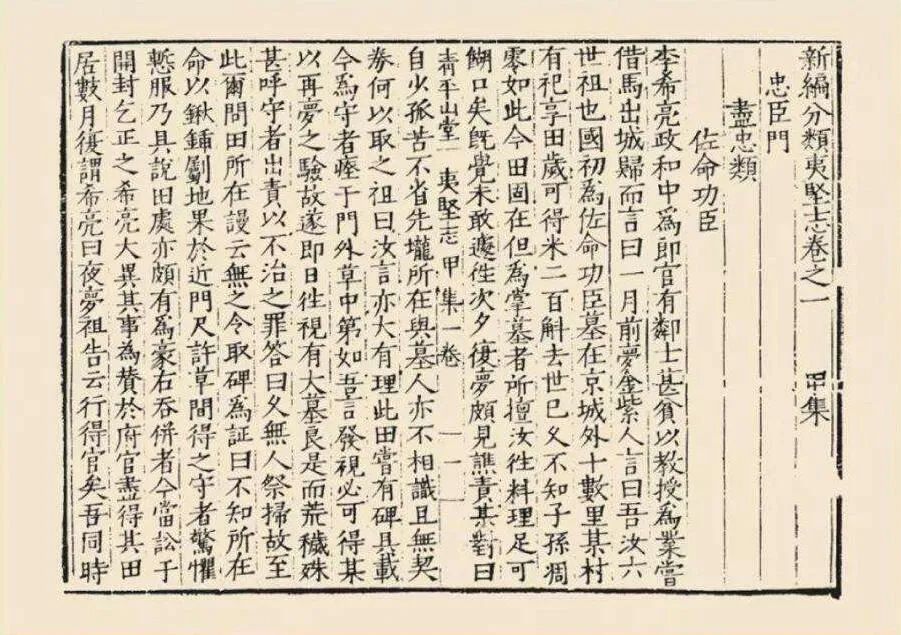 新編分類夷堅志卷之一 甲集
忠臣門
盡忠類
佐命功臣
李希亮政和中爲郎官有鄰士甚貧以教授爲業嘗
借馬出城歸而言曰一月前夢金紫人言曰吾汝六
世祖也國初為佐命功臣墓在京城外十數里某村
有祀享田歲可得米二百斛去世已久不知子孫凋
零如此今田固在但為掌墓者所擅汝徃料理足可
餬口矣旣覺未敢遽徃次夕復夢頗見譙責某對曰
青平山堂 夷堅志 甲集一卷 一
自少孤苦不省先壠所在與墓人亦不相識且無契
券何以取之祖曰汝言亦大有理此田嘗有碑具載
今爲守者瘞于門外草中第如吾言發視必可得某
以再夢之驗故遂即日徃視有大墓良是而荒穢殊
甚呼守者出責以不治之罪答曰久無人祭掃故至
此爾問田所在謾云無之令取碑爲証曰不知所在
命以鍬鍤劚地果於近門尺許草間得之守者驚懼
慙服乃具說田處亦頗有爲豪右吞併者今當訟于
開封乞正之希亮大異其事為賛於府官盡得其田
居數月復謂希亮曰夜夢祖告云行得官矣吾同時